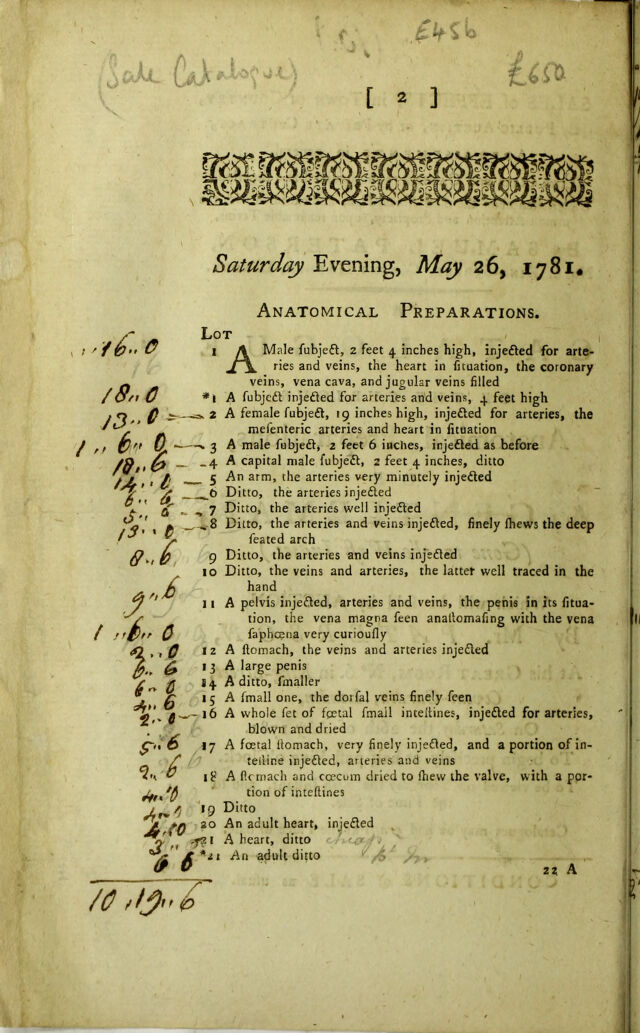 £456
(Sale Catalogue) £650
[ 2 ]
Saturday Evening, May 26, 1781.
ANATOMICAL PREPARATIONS.
LOT
16.. 0 1 A Male ſubject, 2 feet 4 inches high, injected for arte-
ries and veins, the heart in ſituation, the coronary
veins, vena cava, and jugular veins filled
18.. 0 *1 A ſubject injected for arteries and veins, 4 feet high
13.. 0 2 A female ſubject, 19 inches high, injected for arteries, the
meſenteric arteries and heart in ſituation
1.. 6.. 0 3 A male ſubject, 2 feet 6 inches, injected as before
18.. 6 4 A capital male ſubject, 2 feet 4 inches, ditto
14.. 0 5 An arm, the arteries very minutely injected
6.. 6 6 Ditto, the arteries injected
5.. 6 7 Ditto, the arteries well injected
13.. 0 8 Ditto, the arteries and veins injected, finely ſhews the deep
ſeated arch
8.. 6 9 Ditto, the arteries and veins injected
10 Ditto, the veins and arteries, the latter well traced in the
hand
9.. 6 11 A pelvis injected, arteries and veins, the penis in its ſitua-
tion, the vena magna ſeen anaſtomaſing with the vena
1.. 6.. 0 ſaphœna very curiouſly
2.. 0 12 A ſtomach, the veins and arteries injected
6.. 6 13 A large penis
6.. 0 14 A ditto, ſmaller
4.. 6 15 A ſmall one, the dorſal veins finely ſeen
2.. 0 16 A whole ſet of fœtal ſmall inteſtines, injected for arteries,
blown and dried
5.. 6 17 A fœtal ſtomach, very finely injected, and a portion of in-
teſtine injected, arteries and veins
2.. 6 18 A ſtomach and cœcum dried to ſhew the valve, with a por-
tion of inteſtines
19 Ditto
20 An adult heart, injected
21 A heart, ditto
6 6 *21 An adult ditto
22 A
10.. 19.. 6